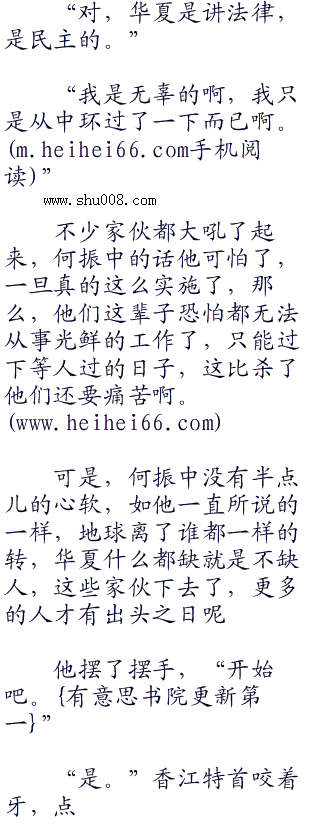 “对，华夏是讲法律，
是民主的。”
“我是无辜的啊，我只
是从中环过了一下而已啊。
(m.heihei66.com手机阅
读)”
www.shu008.com
不少家伙都大吼了起
来，何振中的话他可怕了，
一旦真的这么实施了，那
么，他们这辈子恐怕都无法
从事光鲜的工作了，只能过
下等人过的日子，这比杀了
他们还要痛苦啊。
(www.heihei66.com)
可是，何振中没有半点
儿的心软，如他一直所说的
一样，地球离了谁都一样的
转，华夏什么都缺就是不缺
人，这些家伙下去了，更多
的人才有出头之日呢
他摆了摆手，“开始
吧。{有意思书院更新第
一}”
“是。”香江特首咬着
牙，点